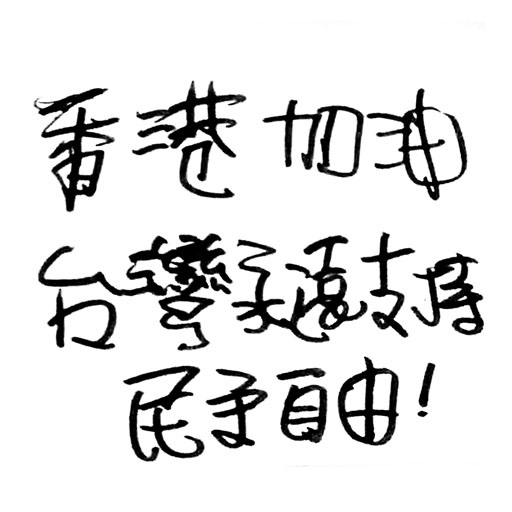 香港加油
台灣永遠支持
民主自由!